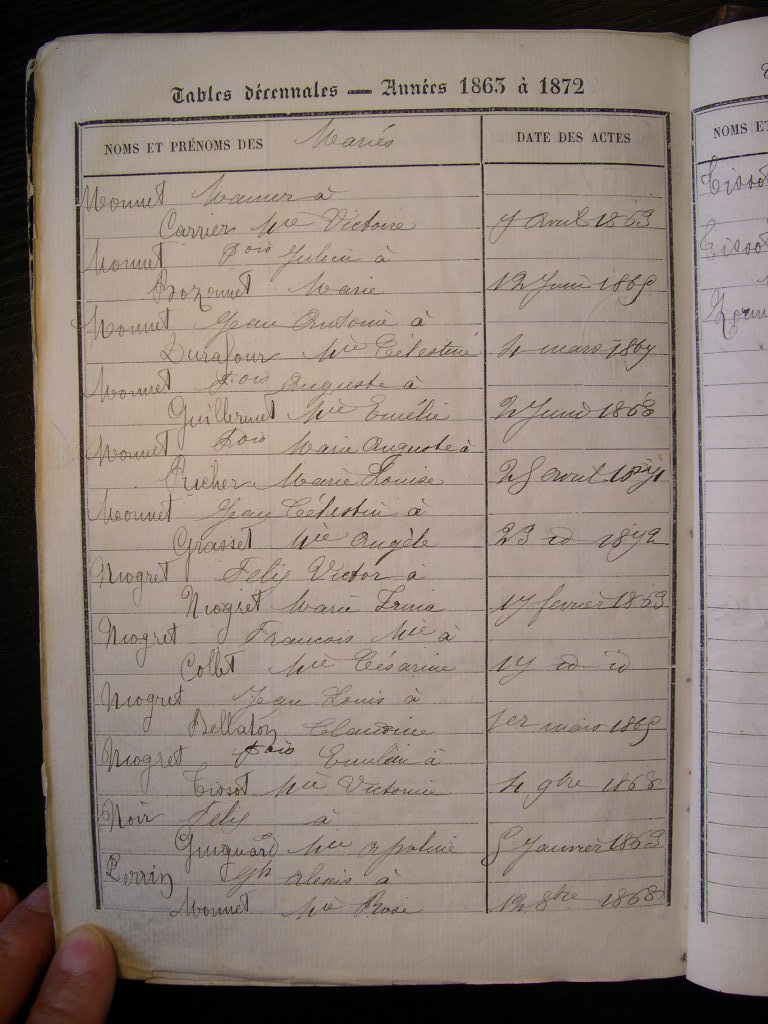 Tables décennales — Années 1863 à 1872
NOMS ET PRÉNOMS DES Mariés
DATE DES ACTES
Monnet à
Carrier Mie Victoire 7 avril 1863
Monnet fois Julien à
Bozonnet Marie 12 Juin 1865
Monnet Jean Antoine à
Durafour Mie Célestine 4 mars 1867
Monnet fois Auguste à
Guillermet Mie Emélie 2 Juin 1868
Monnet fois Marie Auguste à
Richer Marie Louise 28 avril 1871
Monnet Jean Célestin à
Grasset Mie Angèle 23 id 1872
Niogret Felix Victor à
Niogret Marie 17 fevrier 1863
Niogret Francois Mie à
Collet Mie Césarine 17 id id
Niogret Jean Louis à
Bellaton Claudine 1er mars 1865
Niogret fois à
Tissot Mie Victorine 4 9bre 1868
Noir Felix à
Guignard Mie apoline 8 Janvier 1863
Perrin Jph alexis à
Monnet Mie Rose 12 8bre 1868
NOMS ET
Tissot
Tissot